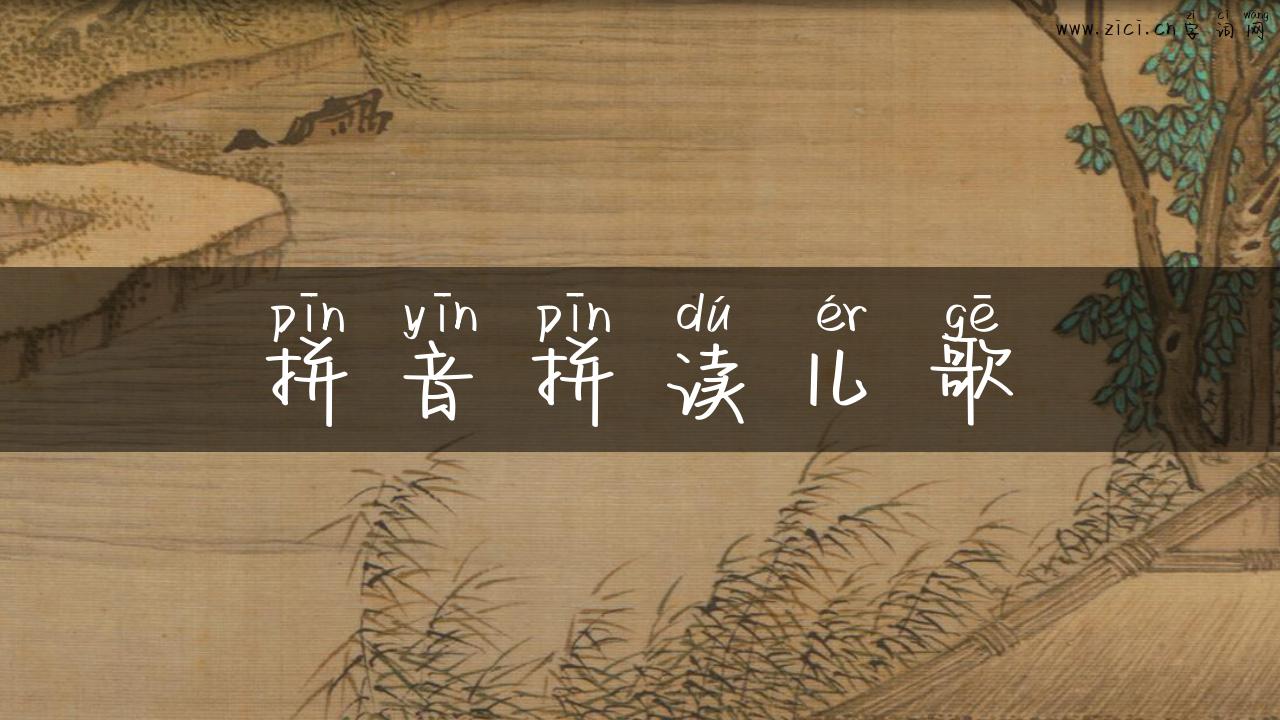 zì cí wǎng
www.zici.cn 字词网
pīn yīn pīn dú ér gē
拼音拼读儿歌